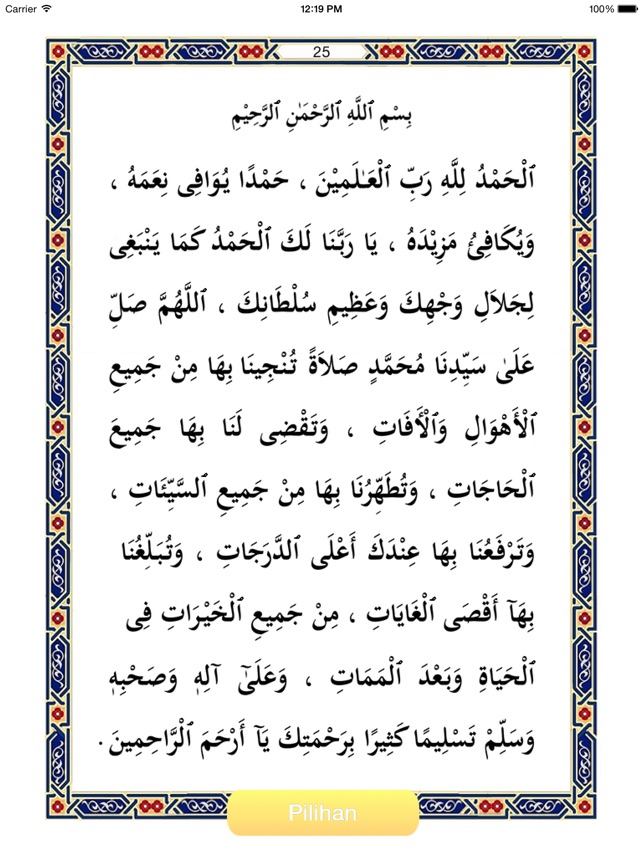 Carrier 12:19 PM 100%
25
بِسْمِ ٱللَّهِ ٱلرَّحْمَٰنِ ٱلرَّحِيْمِ
ٱلْحَمْدُ لِلَّهِ رَبِّ ٱلْعَـٰلَمِيْنَ ، حَمْدًا يُوَافِى نِعَمَهُ ،
وَيُكَافِئُ مَزِيْدَهُ ، يَا رَبَّنَا لَكَ ٱلْحَمْدُ كَمَا يَنْبَغِى
لِجَلاَلِ وَجْهِكَ وَعَظِيمِ سُلْطَانِكَ ، ٱللَّهُمَّ صَلِّ
عَلَىٰ سَيِّدِنَا مُحَمَّدٍ صَلاَةً تُنْجِينَا بِهَا مِنْ جَمِيعِ
ٱلْأَهْوَالِ وَٱلْأَفَاتِ ، وَتَقْضِى لَنَا بِهَا جَمِيعَ
ٱلْحَاجَاتِ ، وَتُطَهِّرُنَا بِهَا مِنْ جَمِيعِ ٱلسَّيِّئَاتِ ،
وَتَرْفَعُنَا بِهَا عِنْدَكَ أَعْلَى ٱلدَّرَجَاتِ ، وَتُبَلِّغُنَا
بِهَآ أَقْصَى ٱلْغَايَاتِ ، مِنْ جَمِيعِ ٱلْخَيْرَاتِ فِى
ٱلْحَيَاةِ وَبَعْدَ ٱلْمَمَاتِ ، وَعَلَىٰٓ آلِهِۦ وَصَحْبِهِۦ
وَسَلِّمْ تَسْلِيمًا كَثِيرًا بِرَحْمَتِكَ يَآ أَرْحَمَ ٱلْرَّاحِمِينَ .
Pilihan